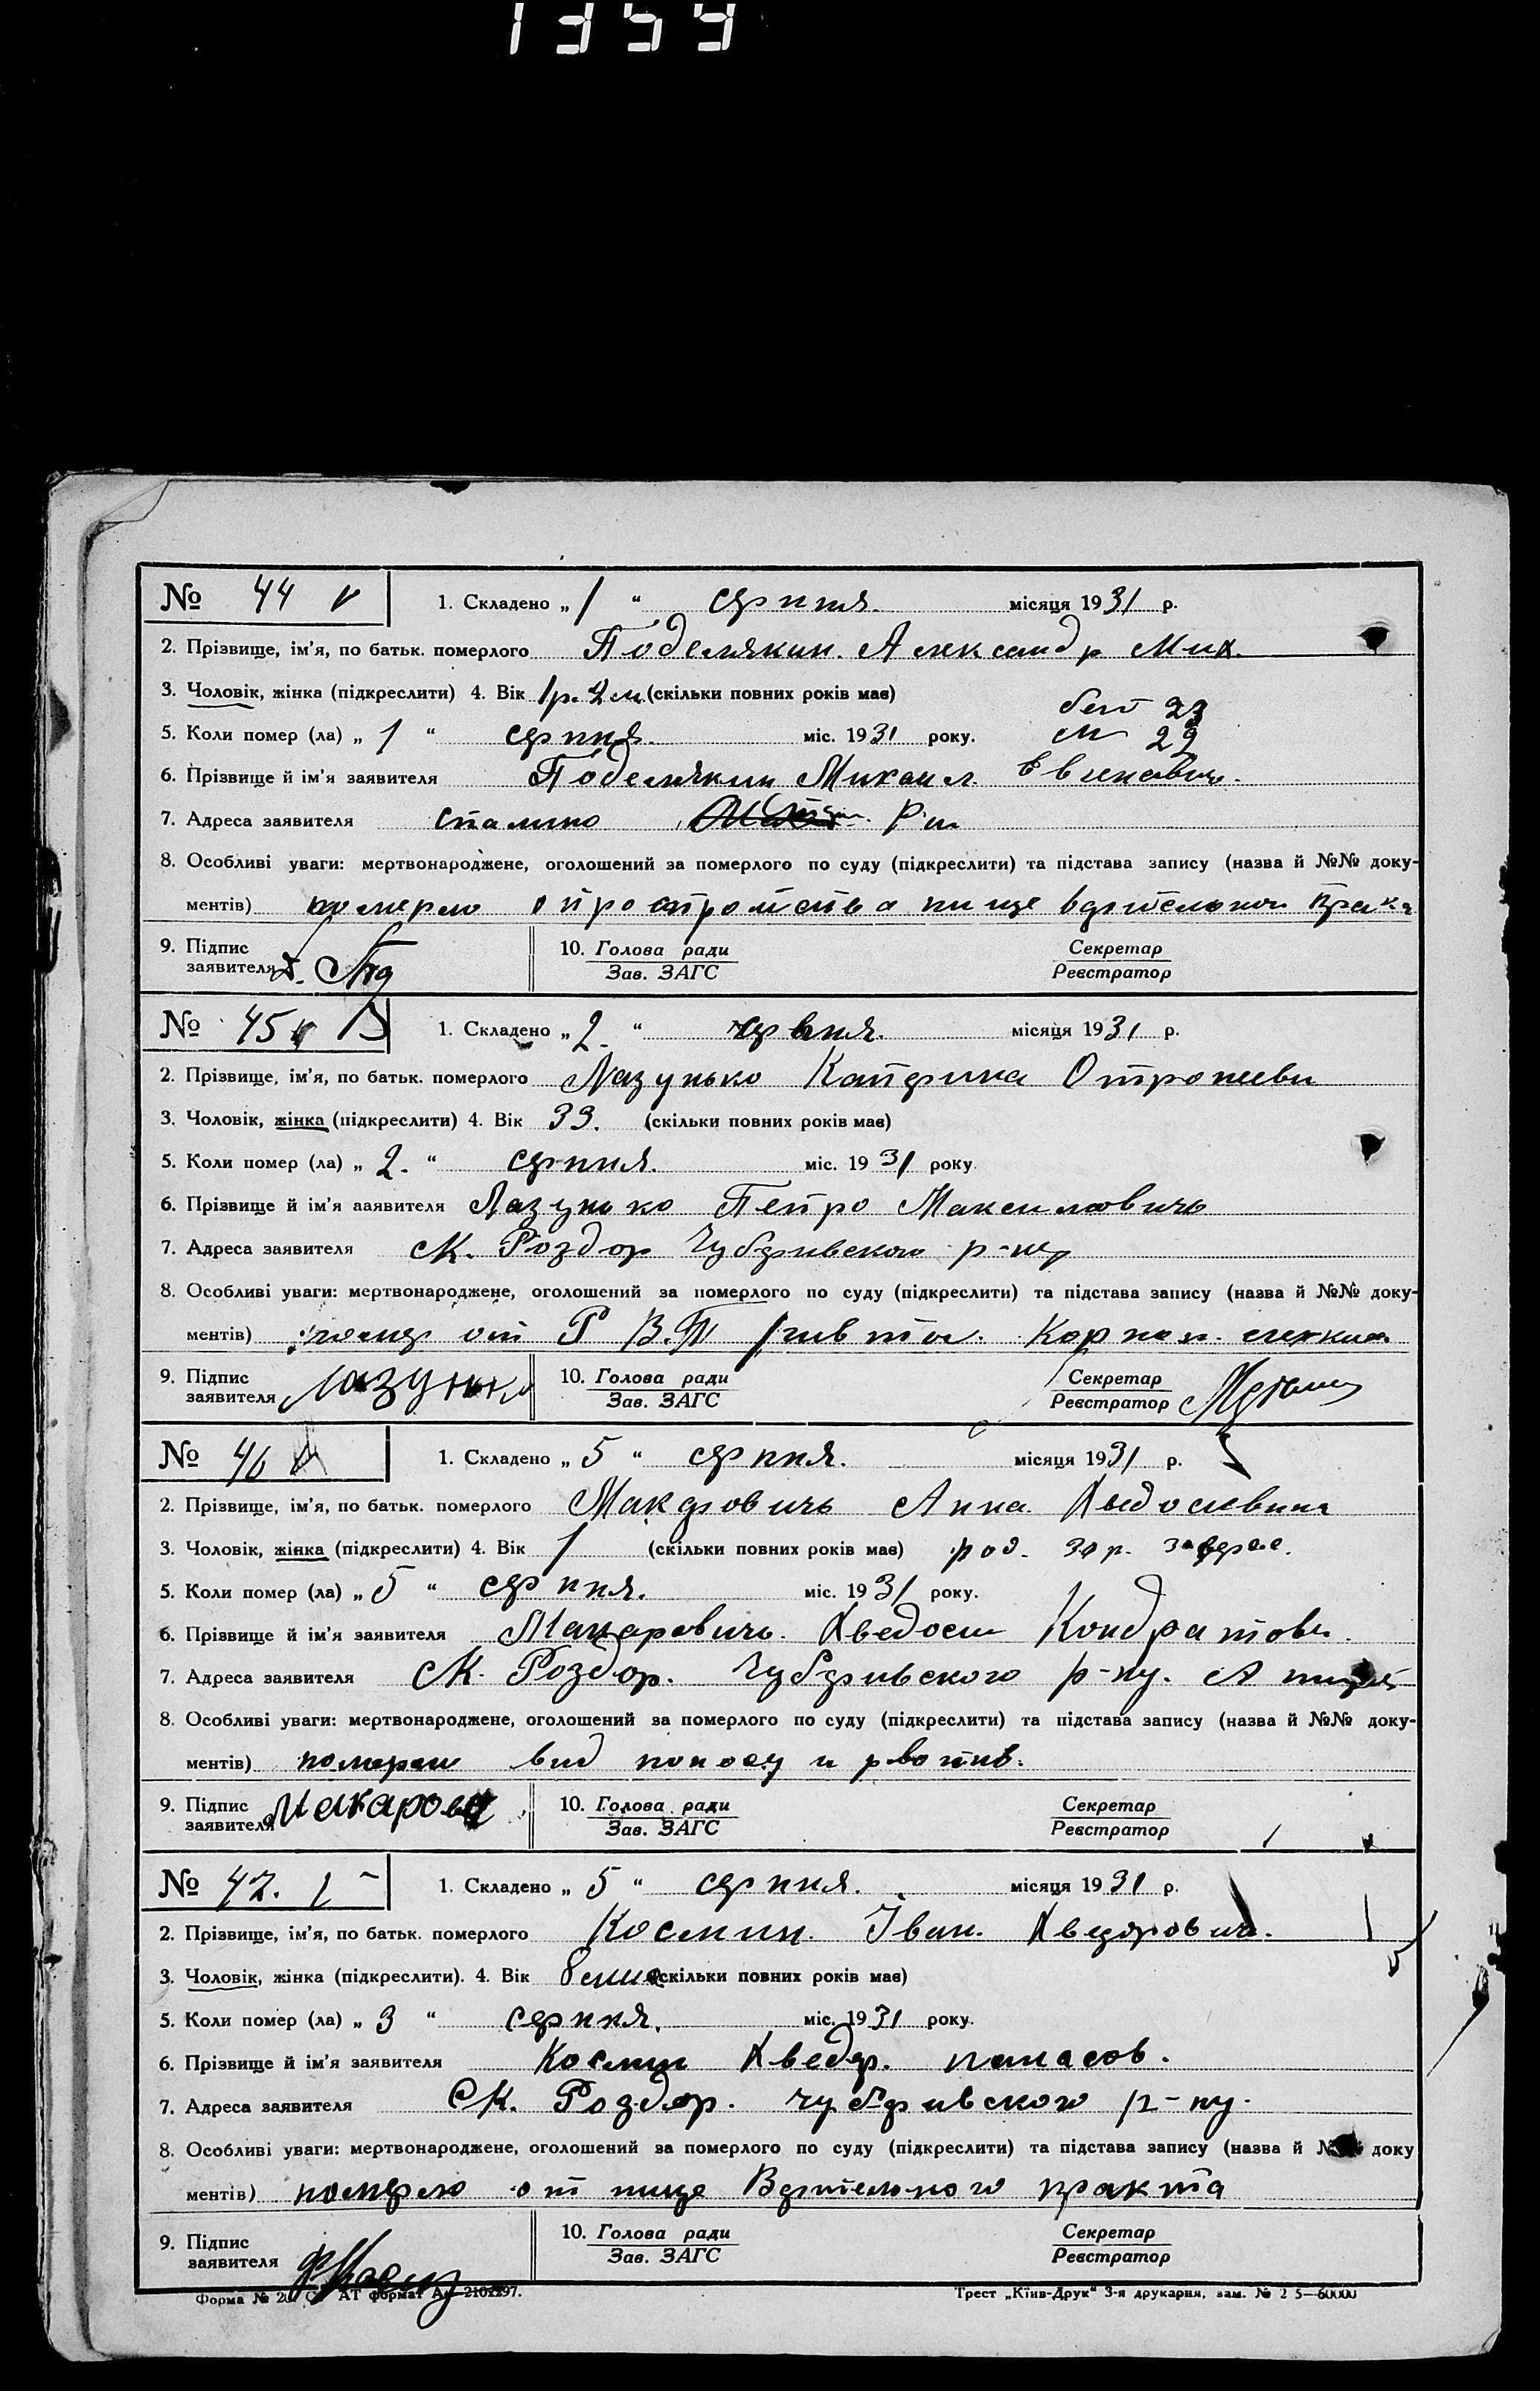 1359
№ 44 v 1. Складено „ 1 “ серпня. місяця 1931 р.
2. Прізвище, ім'я, по батьк. померлого Поделякин. Александр Мих.
3. Чоловік, жінка (підкреслити) 4. Вік 1р. 2 м (скільки повних років має)
23
5. Коли помер (ла) „ 1 “ серпня. міс. 1931 року. М 29
6. Прізвище й ім'я заявителя Поделякин Михаил
7. Адреса заявителя Сталино
8. Особливі уваги: мертвонароджене, оголошений за померлого по суду (підкреслити) та підстава запису (назва й №№ доку-
ментів) померло
9. Підпис заявителя 10. Голова ради Зав. ЗАГС Секретар Реєстратор
№ 45 1. Складено „ 2. “ місяця 1931 р.
2. Прізвище, ім'я, по батьк. померлого Лазунько Катерина
3. Чоловік, жінка (підкреслити) 4. Вік 39. (скільки повних років має)
5. Коли помер (ла) „ 2. “ серпня. міс. 1931 року.
6. Прізвище й ім'я заявителя Лазунько Петро Максимовичь
7. Адреса заявителя М. Роздор Чубарівского р-ну
8. Особливі уваги: мертвонароджене, оголошений за померлого по суду (підкреслити) та підстава запису (назва й №№ доку-
ментів) от
9. Підпис заявителя Лазунько 10. Голова ради Зав. ЗАГС Секретар Реєстратор
№ 46 1. Складено „ 5 “ серпня. місяця 1931 р.
2. Прізвище, ім'я, по батьк. померлого Макаровичь Анна
3. Чоловік, жінка (підкреслити) 4. Вік 1 (скільки повних років має)
5. Коли помер (ла) „ 5 “ серпня. міс. 1931 року.
6. Прізвище й ім'я заявителя Макаровичь Хведоси Кондратови.
7. Адреса заявителя М. Роздор. Чубарівского р-ну.
8. Особливі уваги: мертвонароджене, оголошений за померлого по суду (підкреслити) та підстава запису (назва й №№ доку-
ментів) вид поносу и рвотив.
9. Підпис заявителя 10. Голова ради Зав. ЗАГС Секретар Реєстратор
№ 47. 1. Складено „ 5 “ серпня. місяця 1931 р.
2. Прізвище, ім'я, по батьк. померлого Космин. Іван. Хведорович.
3. Чоловік, жінка (підкреслити). 4. Вік 8 (скільки повних років має)
5. Коли помер (ла) „ 3 “ серпня. міс. 1931 року.
6. Прізвище й ім'я заявителя Космин Хведер. панасов.
7. Адреса заявителя М. Роздор. чубарівского р-ну.
8. Особливі уваги: мертвонароджене, оголошений за померлого по суду (підкреслити) та підстава запису (назва й доку
ментів) померло от пище Варительного тракта
9. Підпис заявителя 10. Голова ради Зав. ЗАГС Секретар Реєстратор
Форма № 20 АТ формат Трест „Київ-Друк“ 3-я друкарня, зам. № 2 5—60000